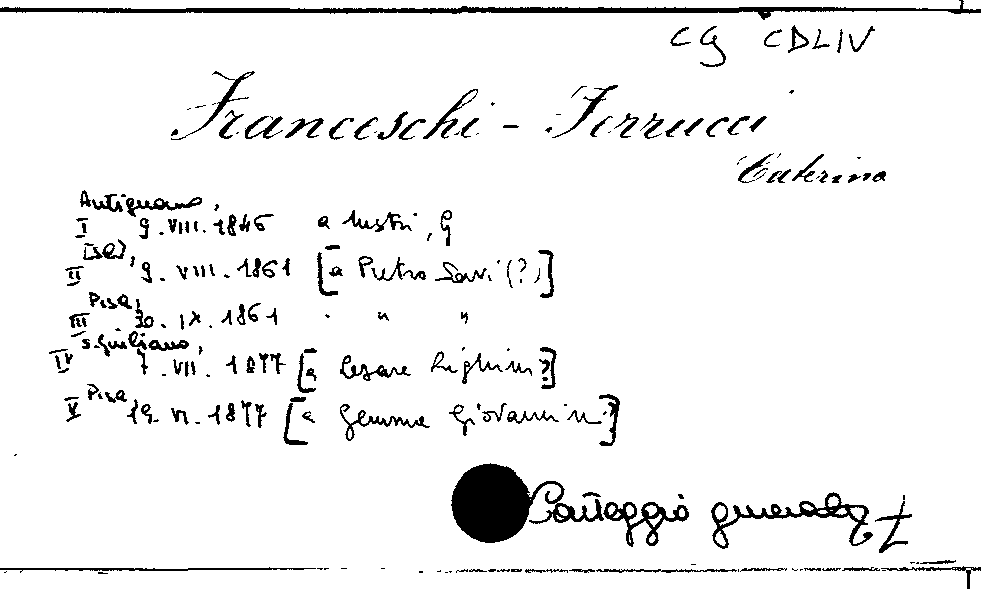 CG CDLIV
Franceschi - Ferrucci
Caterina
Antignano,
I 9.VIII.1846 a Mistri, G
[s.l.],
II 9.VIII.1861 [a Pietro Savi (?)]
Pisa,
III 30.IX.1861 " " "
S.Giuliano,
IV 7.VII.1877 [a Cesare Righini?]
Pisa,
V 19.VI.1877 [a Gemma Giovannini?]
Carteggio generale